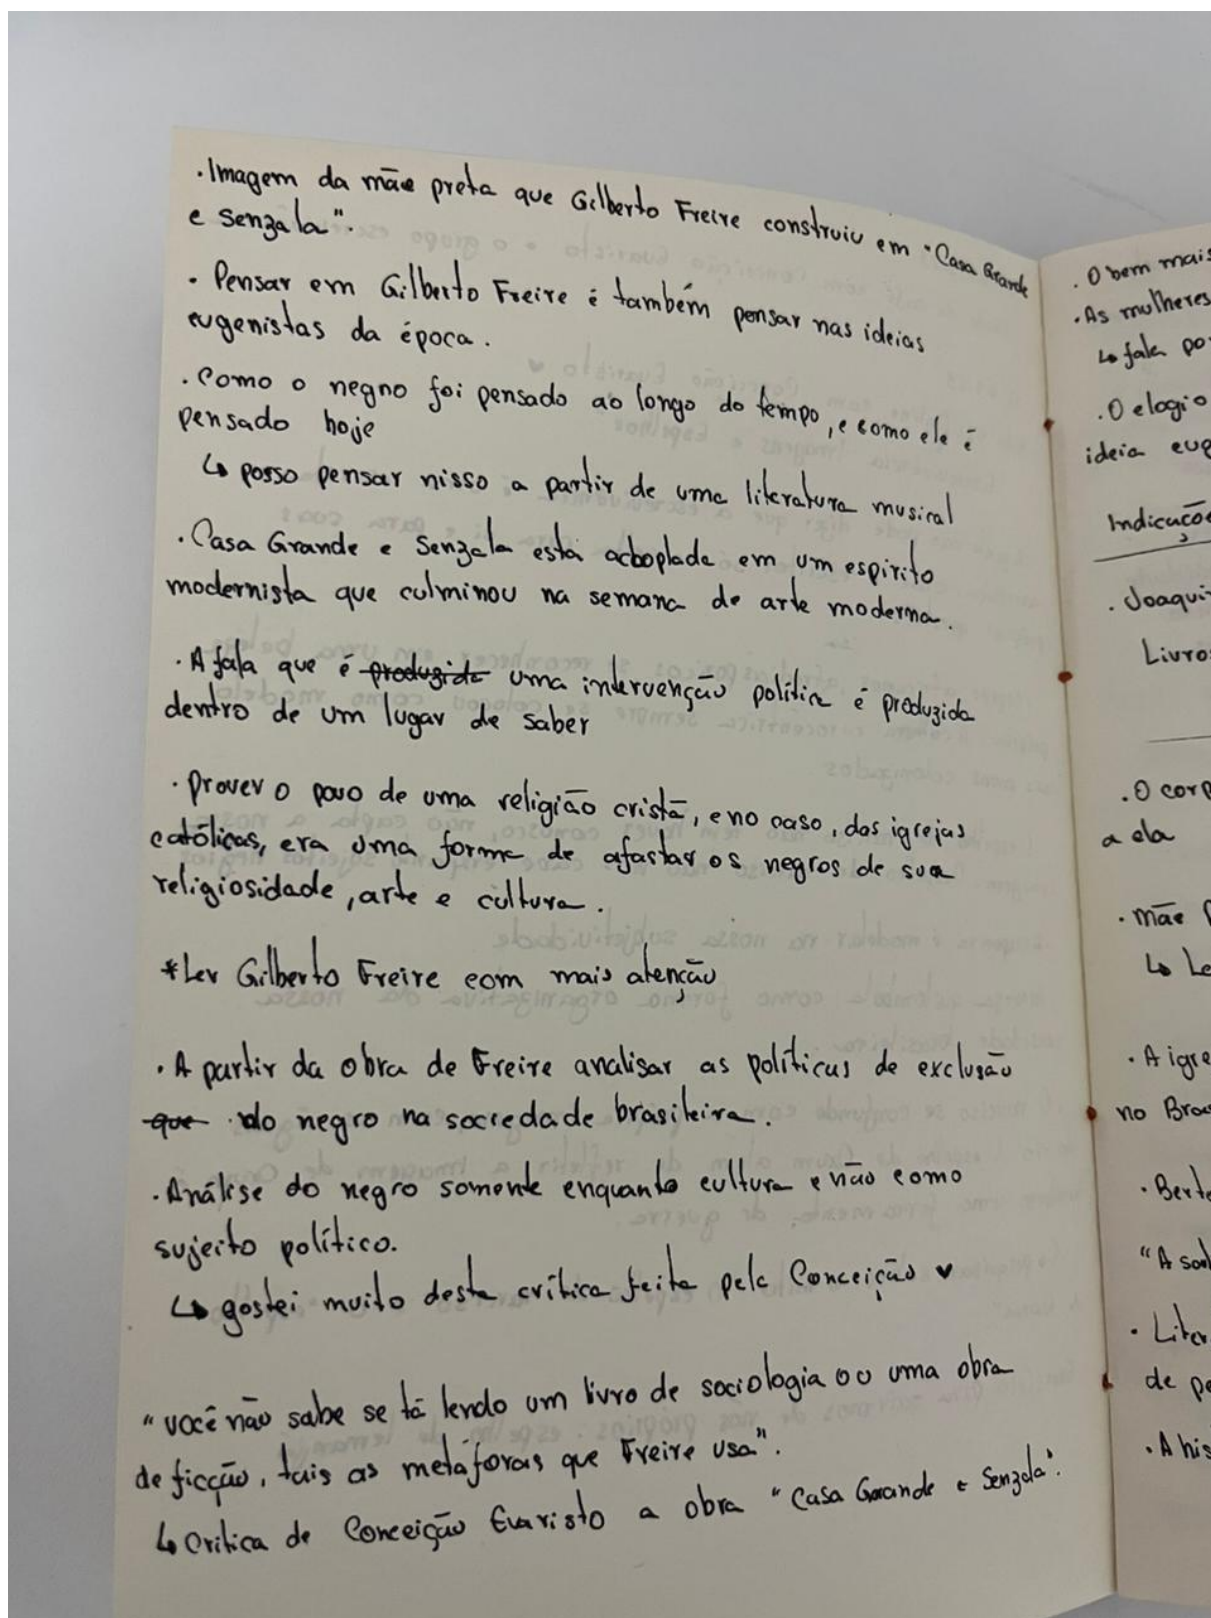 · Imagem da mãe preta que Gilberto Freire construiu em "Casa Grande
e Senzala".
· Pensar em Gilberto Freire é também pensar nas ideias
eugenistas da época.
· Como o negno foi pensado ao longo do tempo, e como ele é
pensado hoje
↳ posso pensar nisso a partir de uma literatura musical
· Casa Grande e Senzala está acboplada em um espirito
modernista que culminou na semana de arte moderna.
· A fala que é produzida uma intervenção política é produzida
dentro de um lugar de saber
· Prover o povo de uma religião cristã, e no caso, das igrejas
católicas, era uma forma de afastar os negros de sua
religiosidade, arte e cultura.
*Ler Gilberto Freire com mais atenção
· A partir da obra de Freire analisar as políticas de exclusão
que do negro na sociedade brasileira.
· Análise do negro somente enquanto cultura e não como
sujeito político.
↳ gostei muito desta crítica feita pela Conceição ♥
"você não sabe se tá lendo um livro de sociologia ou uma obra
de ficção, tais as metáforas que Freire usa".
↳ Critica de Conceição Evaristo a obra "Casa Grande e Senzala".
· O bem mais
· As mulheres
↳ fala po
· O elogio
ideia eug
Indicaçõe
· Joaqui
Livro
· O corp
a ela
· mãe p
↳ Le
· A igre
no Bra
· Bert
"A sol
· Liter
de pe
· A his